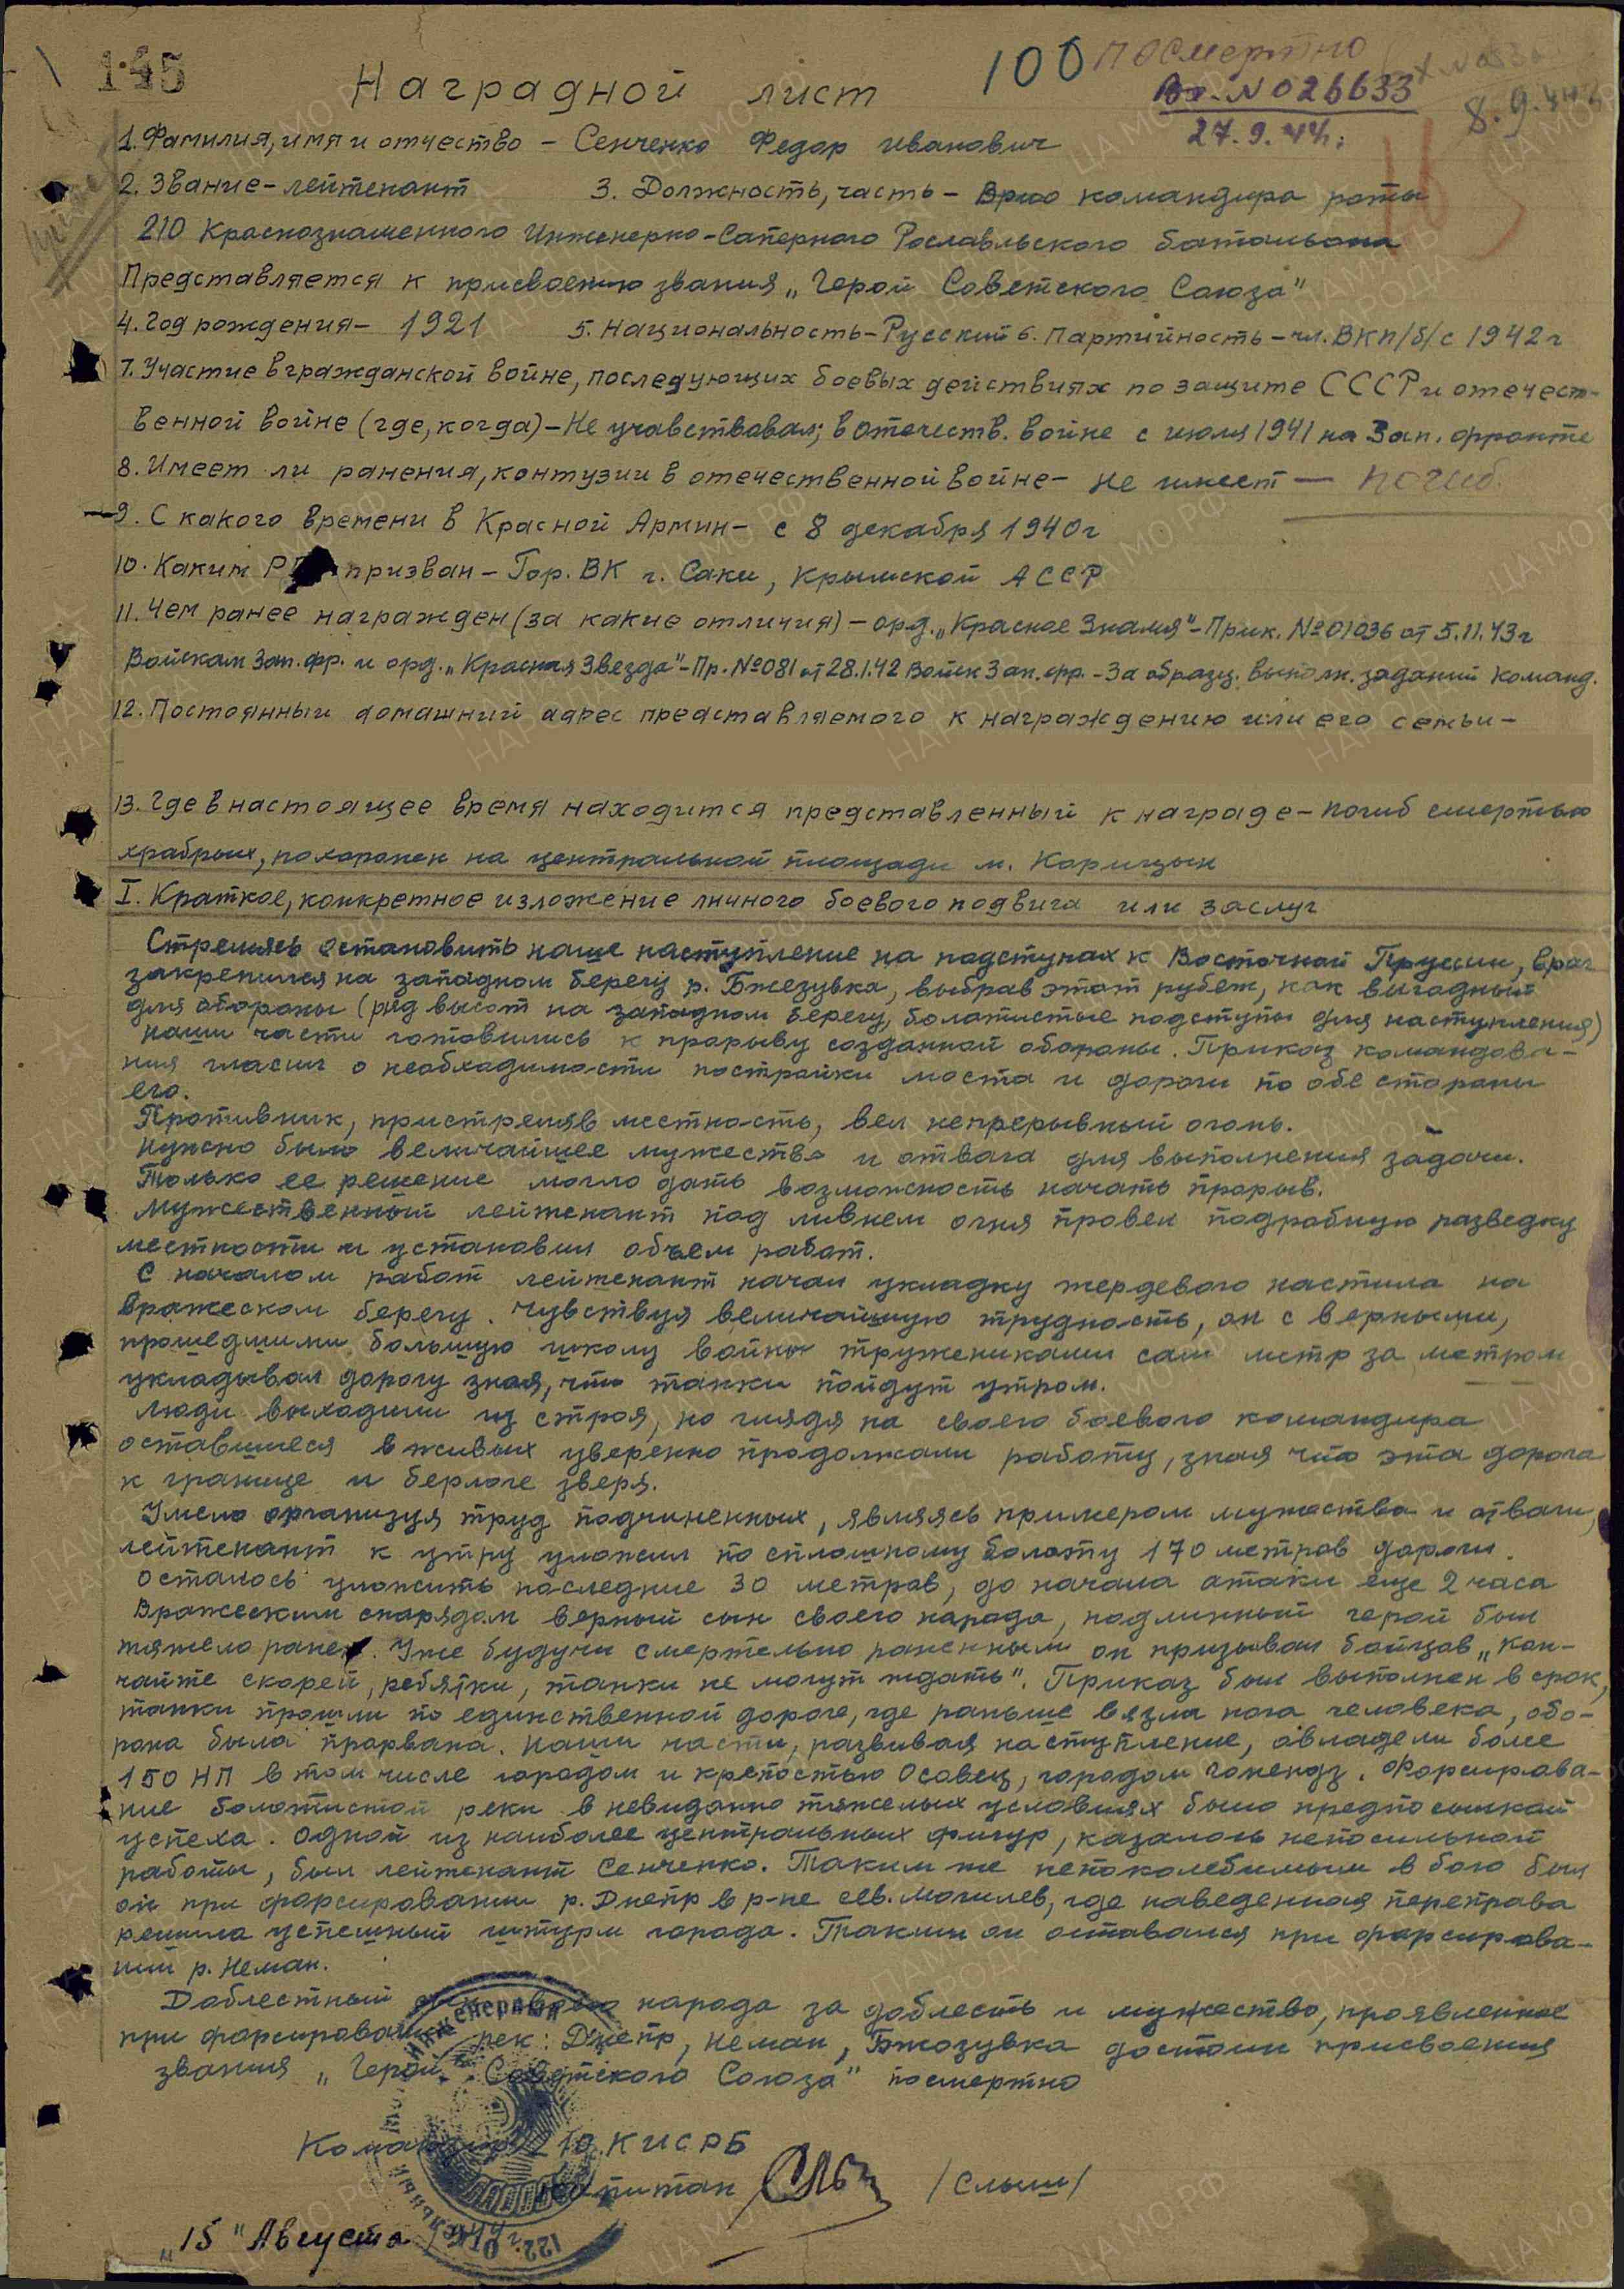 145
100 посмертно
Вх. N 026633
27.9.44г.
8.9.44г
Наградной лист
1. Фамилия, имя и отчество – Сенченко Федор Иванович
2. Звание – лейтенант 3. Должность, часть – Врио командира роты
210 Краснознаменного Инженерно-Саперного Рославльского батальона
Представляется к присвоению звания „Герой Советского Союза"
4. Год рождения – 1921 5. Национальность – Русский 6. Партийность – чл. ВКП/б/ с 1942 г
7. Участие в гражданской войне, последующих боевых действиях по защите СССР и отечест-
венной войне (где, когда) – Не учавствовал; в отечеств. войне с июля 1941 на Зап. фронте
8. Имеет ли ранения, контузии в отечественной войне – не имеет — погиб.
9. С какого времени в Красной Армии – с 8 декабря 1940 г
10. Каким призван – Гор. ВК г. Саки, Крымской АССР
11. Чем ранее награжден (за какие отличия) – орд. „Красное Знамя" – Прик. №01036 от 5.11.43 г
Войскам Зап. фр. и орд. „Красная Звезда" – Пр. №081 от 28.1.42 Войск Зап. фр. – За образц. выполн. заданий команд.
12. Постоянный домашний адрес представляемого к награждению или его семьи –
13. Где в настоящее время находится представленный к награде – погиб смертью
храбрых, похоронен на центральной площади м. Корицын
I. Краткое, конкретное изложение личного боевого подвига или заслуг
Стремясь остановить наше наступление на подступах к Восточной Пруссии, враг
закрепился на западном берегу р. Бжезувка, выбрав этот рубеж, как выгодный
для обороны (ряд высот на западном берегу, болотистые подступы для наступления)
Наши части готовились к прорыву созданной обороны. Приказ командова-
ния гласил о необходимости постройки моста и дороги по обе стороны
его.
Противник, пристреляв местность, вел непрерывный огонь.
Нужно было величайшее мужество и отвага для выполнения задачи.
Только ее решение могло дать возможность начать прорыв.
Мужественный лейтенант под ливнем огня провел подробную разведку
местности и установил объем работ.
С началом работ лейтенант начал укладку жердевого настила на
вражеском берегу. Чувствуя величайшую трудность, он с верными,
прошедшими большую школу войны тружениками сам метр за метром
укладывал дорогу зная, что танки пойдут утром.
Люди выходили из строя, но глядя на своего боевого командира
оставшиеся в живых уверенно продолжали работу, зная что эта дорога
к границе и берлоге зверя.
Умело организуя труд подчиненных, являясь примером мужества и отваги,
лейтенант к утру уложил по сплошному болоту 170 метров дороги.
Осталось уложить последние 30 метров, до начала атаки еще 2 часа
Вражеским снарядом верный сын своего народа, подлинный герой был
тяжело ранен. Уже будучи смертельно раненным он призывал бойцов „Кон-
чайте скорей, ребятки, танки не могут ждать". Приказ был выполнен в срок,
танки прошли по единственной дороге, где раньше вязла нога человека, обо-
рона была прорвана. Наши части, развивая наступление, овладели более
150 НП в том числе городом и крепостью Осовец, городом Гонендз. Форсирова-
ние болотистой реки в невиданно тяжелых условиях было предпосылкой
успеха. Одной из наиболее центральных фигур, казалось непосильной
работы, был лейтенант Сенченко. Таким же непоколебимым в бою был
он при форсировании р. Днепр в р-не сев. Могилев, где наведенная переправа
решила успешный штурм города. Таким он оставался при форсирова-
нии р. Неман.
Доблестный народа за доблесть и мужество, проявленное
при форсировании рек: Днепр, Неман, Бжозувка достоин присвоения
звания „Герой Советского Союза" посмертно
Командир 210 КИСРБ
капитан /Слыш/
„15" Августа